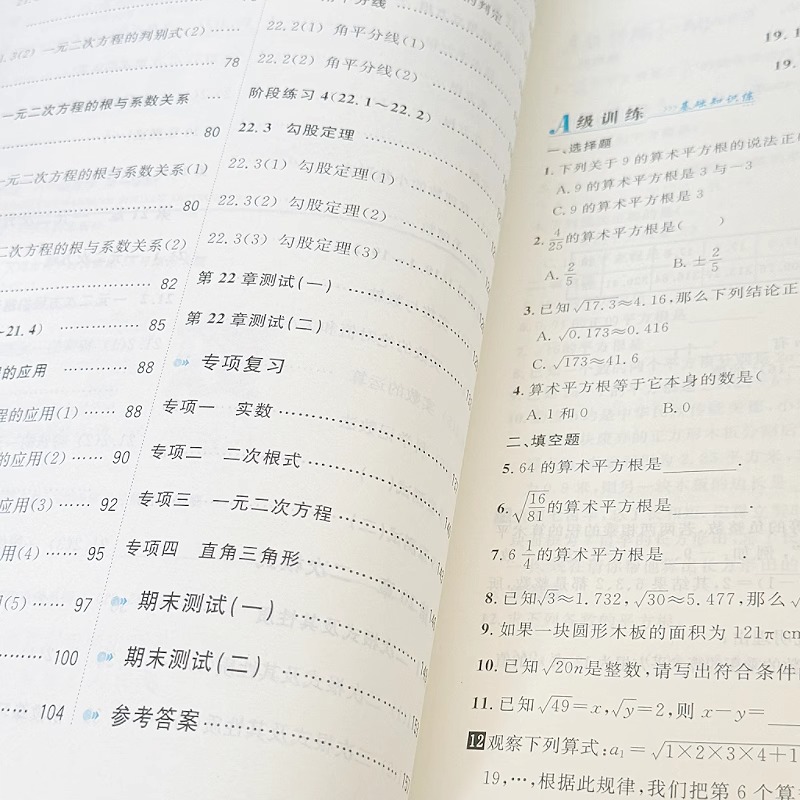 .3(2) 一元二次方程的判别式(2) ……
78
一元二次方程的根与系数关系 …
80
一元二次方程的根与系数关系(1)
80
二次方程的根与系数关系(2)
82
21.4) …………… 85
的应用 ………… 88
程的应用(1) …… 88
的应用(2) …… 90
应用(3) …… 92
用(4) …… 95
用(5) …… 97
100
104
22.2(1) 角平分线(1)
22.2(2) 角平分线(2)
阶段练习4(22.1~22.2)
22.3 勾股定理
22.3(1) 勾股定理(1)
22.3(2) 勾股定理(2)
22.3(3) 勾股定理(3)
第22章测试(一)
第22章测试(二)
专项复习
专项一 实数
专项二 二次根式
专项三 一元二次方程
专项四 直角三角形
期末测试(一)
期末测试(二)
参考答案
19.
19.
A级训练 …基础知识练
一、选择题
1. 下列关于9的算术平方根的说法正
A. 9的算术平方根是3与-3
C. 9的算术平方根是3
2. 4/25的算术平方根是( )
A. 2/5 B. ±2/5
3. 已知√17.3≈4.16,那么下列结论正
A. √0.173≈0.416
C. √173≈41.6
4. 算术平方根等于它本身的数是(
A. 1和0 B. 0
二、填空题
5. 64的算术平方根是________.
6. √16/81的算术平方根是________.
7. 6 1/4的算术平方根是________.
8. 已知√3≈1.732,√30≈5.477,那么√
9. 如果一块圆形木板的面积为121π cm
10. 已知√20n是整数,请写出符合条件
11. 已知√49=x,√y=2,则x-y=
12 观察下列算式:a₁=√1×2×3×4+1
19,…,根据此规律,我们把第6个算